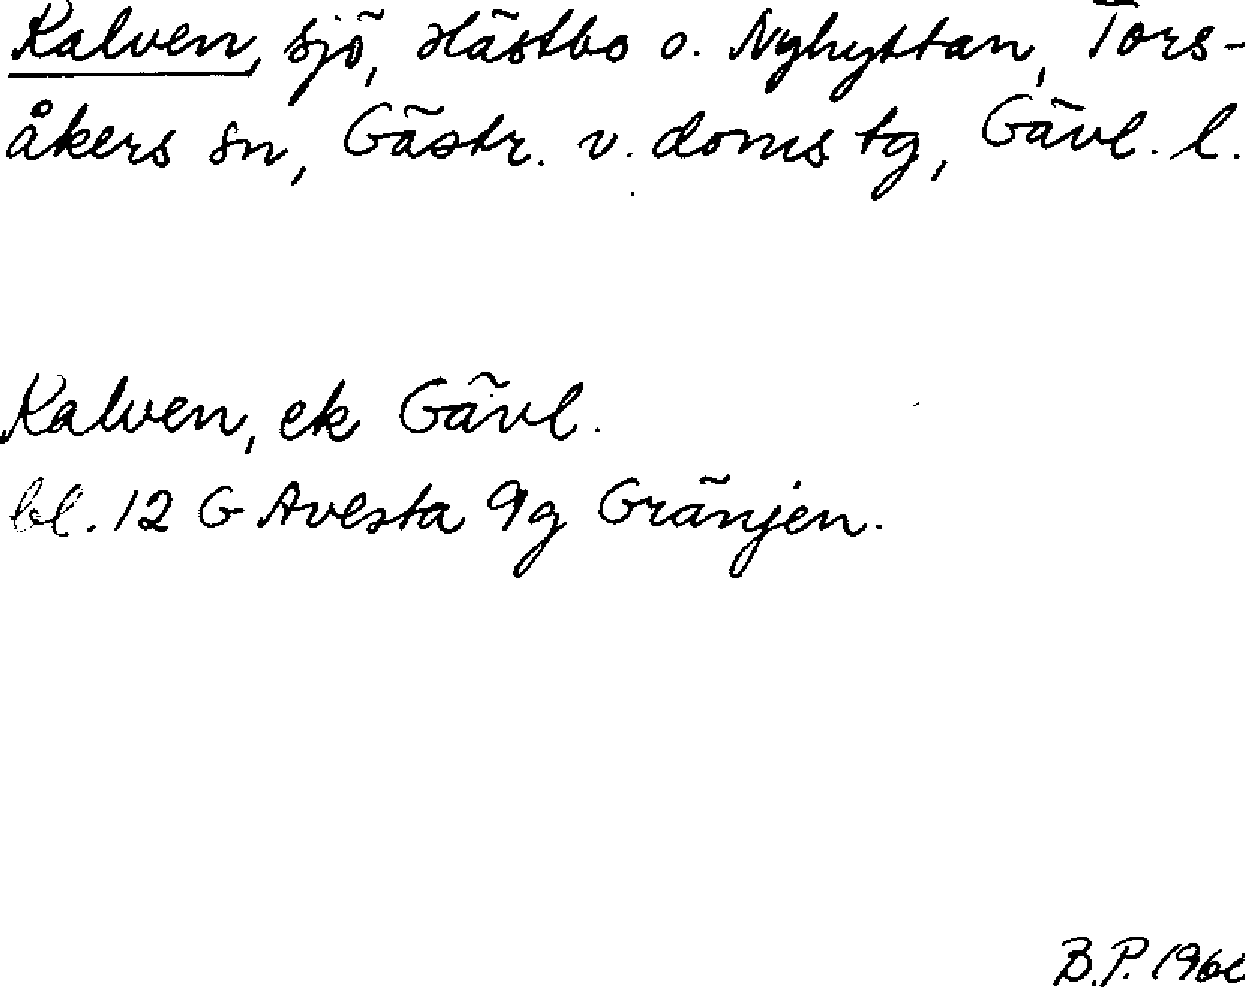 Kalven, sjö, Hästbo o. Nyhyttan, Tors-
åkers sn, Gästr. v. doms tg, Gävl. l.
Kalven, ek Gävl.
bl. 12 G Avesta 9g Gränjen.
B.P.